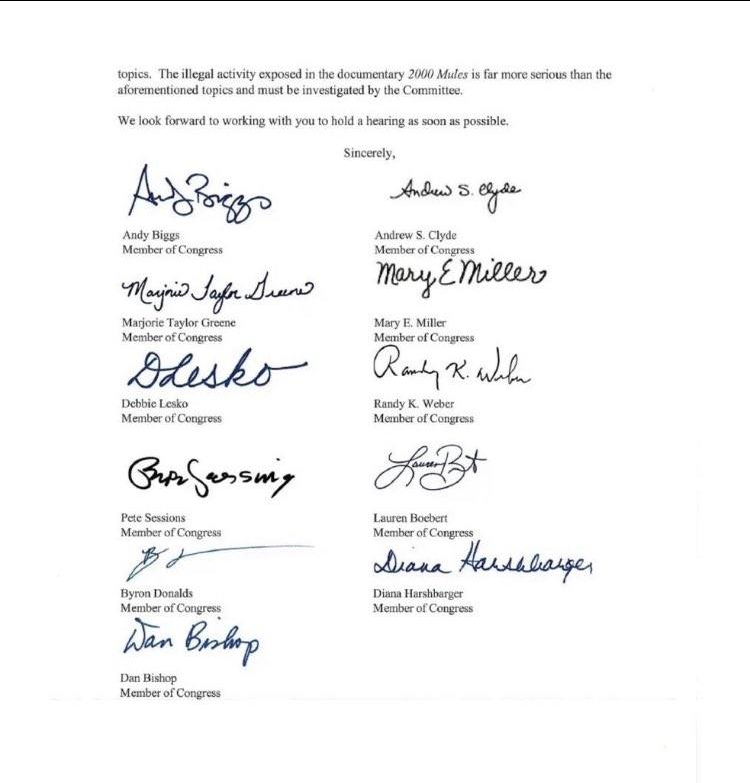 topics. The illegal activity exposed in the documentary 2000 Mules is far more serious than the
aforementioned topics and must be investigated by the Committee.
We look forward to working with you to hold a hearing as soon as possible.
Sincerely,
Andy Biggs
Andrew S. Clyde
Andy Biggs
Member of Congress
Andrew S. Clyde
Member of Congress
Marjorie Taylor Greene
Mary E Miller
Marjorie Taylor Greene
Member of Congress
Mary E. Miller
Member of Congress
DLesko
Randy K. Weber
Debbie Lesko
Member of Congress
Randy K. Weber
Member of Congress
Pete Sessions
Member of Congress
Lauren Boebert
Member of Congress
Diana Harshbarger
Byron Donalds
Member of Congress
Diana Harshbarger
Member of Congress
Dan Bishop
Dan Bishop
Member of Congress